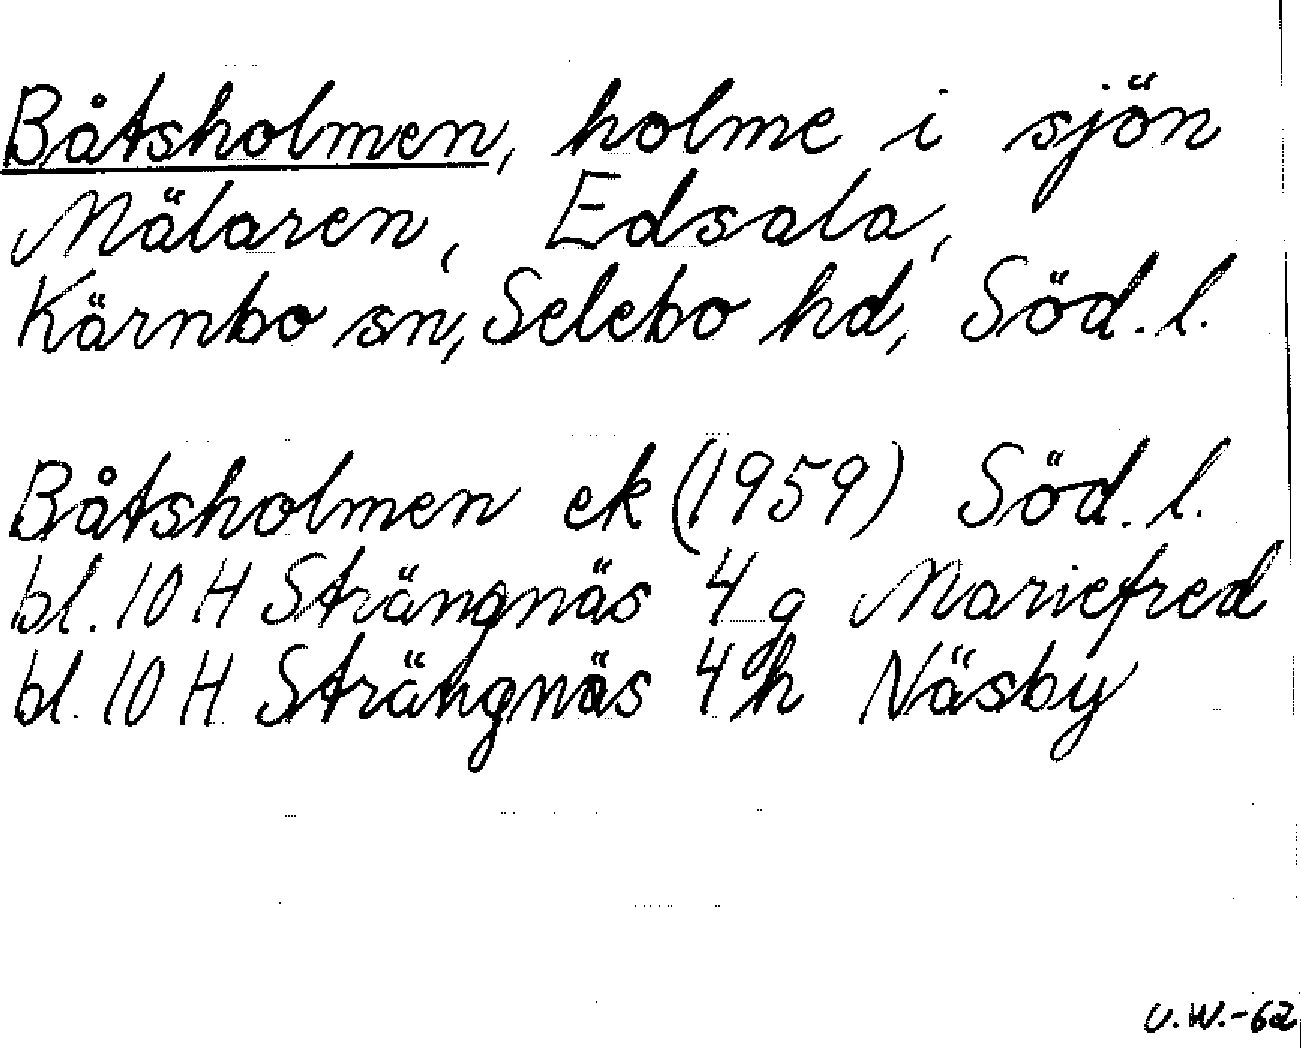 Båtsholmen, holme i sjön
Mälaren, Edsala,
Kärnbo sn, Selebo hd, Söd. l.
Båtsholmen ek (1959) Söd. l.
bl. 10 H Strängnäs 4 g Mariefred
bl. 10 H Strängnäs 4 h Näsby
U.W.-62